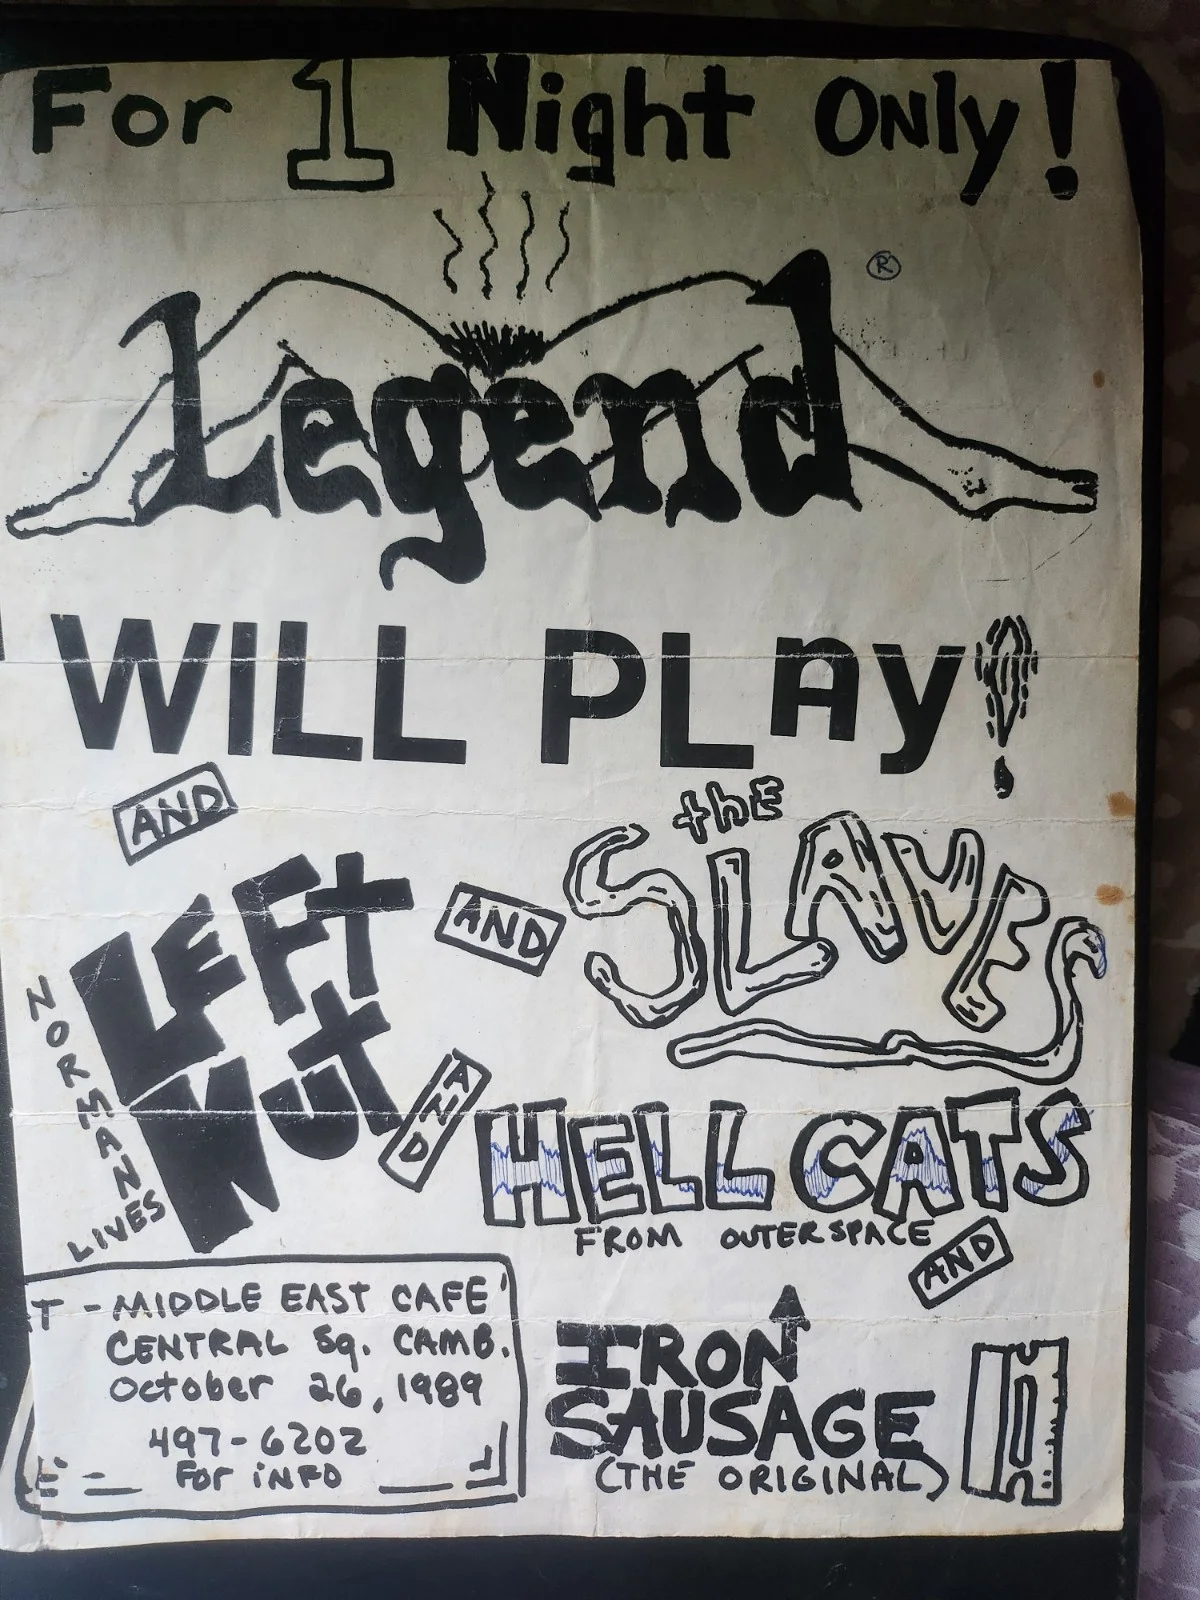 For 1 Night Only!
®
Legend
WILL PLAY!
AND
LEFT
NUT
NORMAN
LIVES
AND
the
SLAVES
AND
HELLCATS
FROM OUTERSPACE
AND
IRON
SAUSAGE
(THE ORIGINAL)
T - MIDDLE EAST CAFE'
CENTRAL Sq. CAMB.
October 26, 1989
497-6202
For iNFO